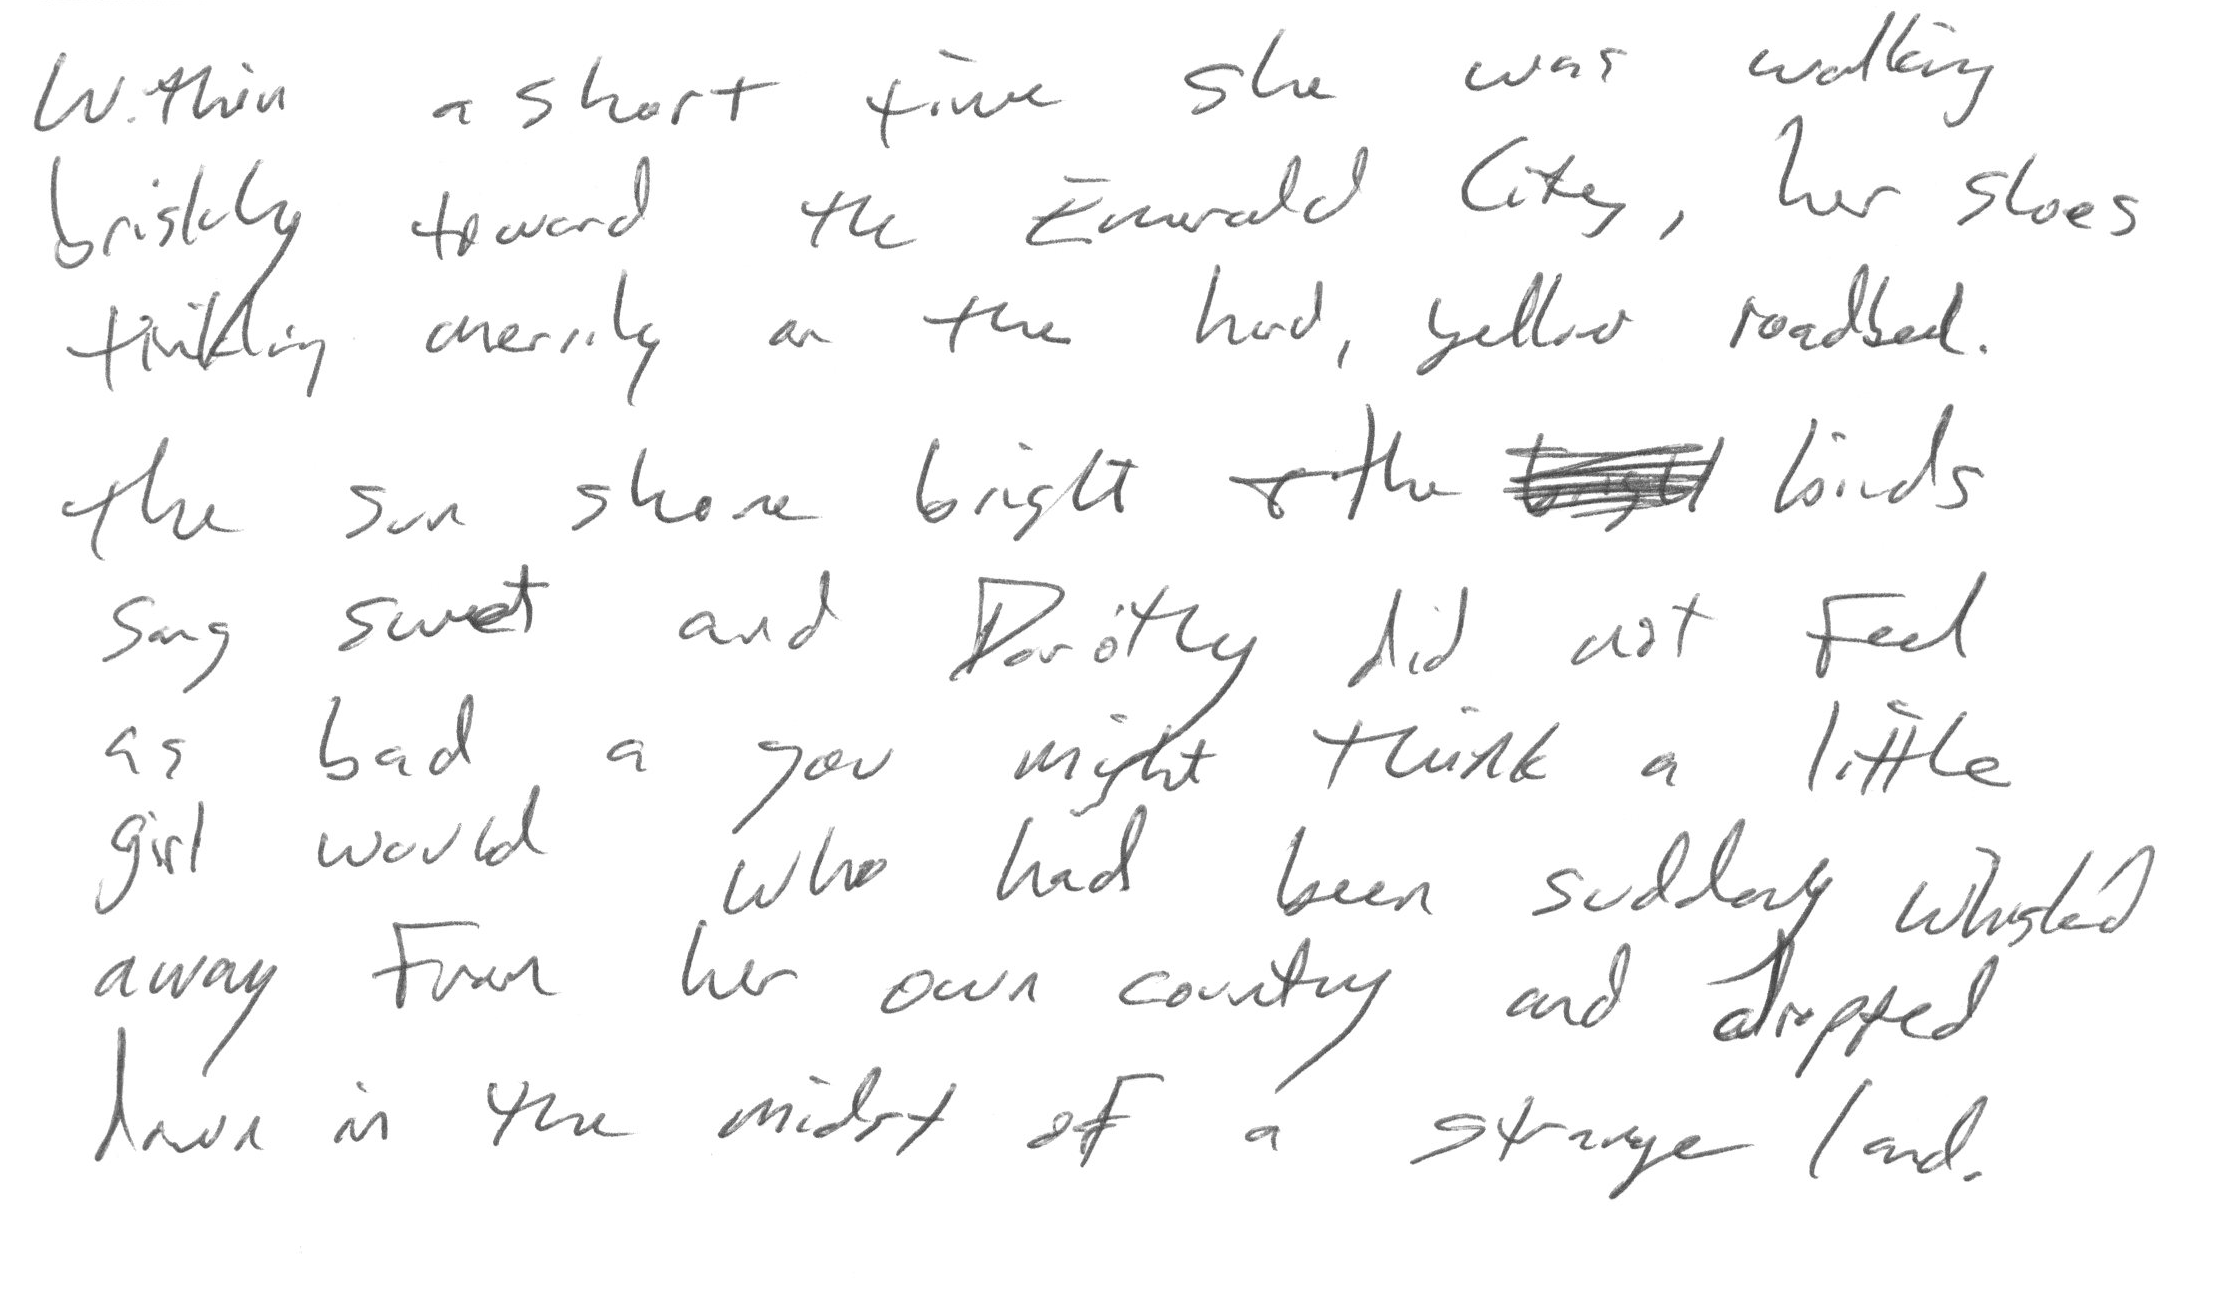 Within a short time she was walking
briskly toward the Emerald City, her shoes
tinkling merrily on the hard, yellow roadbed.
the sun shone bright & the birds
sang sweet and Dorothy did not feel
as bad a you might think a little
girl would who had been suddenly whisked
away From her own country and dropped
down in the midst of a strange land.